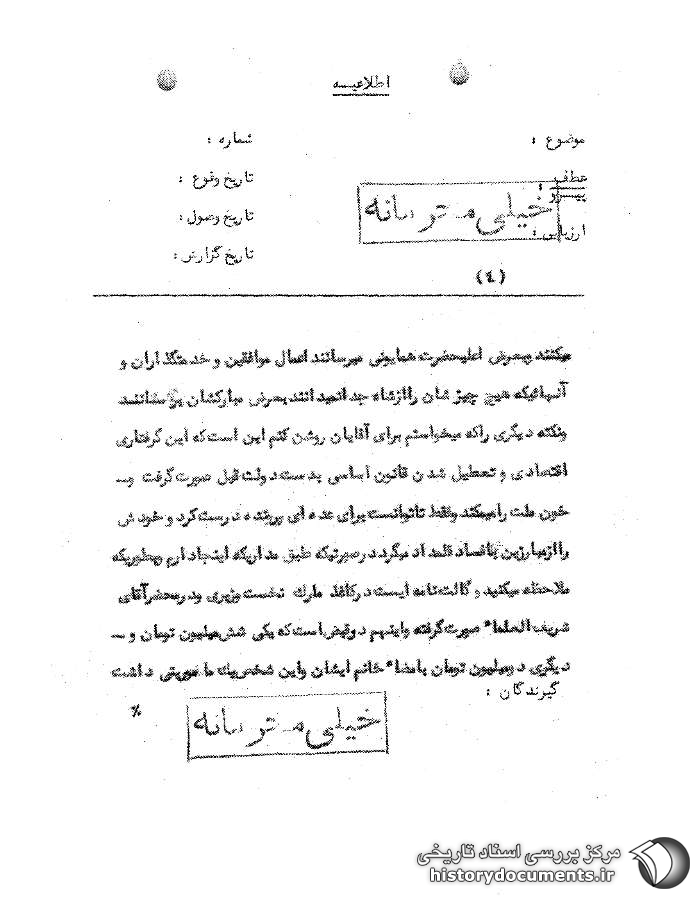 اطلاعیسه
موضوع :
شماره :
عطف
پیسرو :
تاریخ وقوع :
خیلی محرمانه
تاریخ وصول :
ارزیابی :
تاریخ گزارش :
(٤)
میکنند وبعرض اعلیحضرت همایونی میرسانند اعمال موافقین و خدمتگذاران و
آنهائیکه هیچ چیز شان راازشاه جدانمیدانند بعرض مبارکشان
ونکته دیگری راکه میخواستم برای آقایان روشن کنم این است که این گرفتاری
اقتصادی و تعطیل شدن قانون اساسی بدست دولت قبل صورت گرفت و
خون ملت رامیمکند وفقط تاتوانست برای عده ای پرونده درست کرد و خودش
راازمبارزین بافساد قلمداد میکرد درصورتیکه طبق مدارکیکه اینجادارم وبطوریکه
ملاحظه میکنید وکالت نامه ایست درکاغذ مارک نخست وزیری ودرمحضرآقای
شریف العلماء صورت گرفته واینهم دوقبض است که یکی شش میلیون تومان و
دیگری دومیلیون تومان بامضاء خانم ایشان واین شخص یک ماموریتی داشت
گیرندگان :
٪
خیلی محرمانه
مرکز بررسی اسناد تاریخی
historydocuments.ir